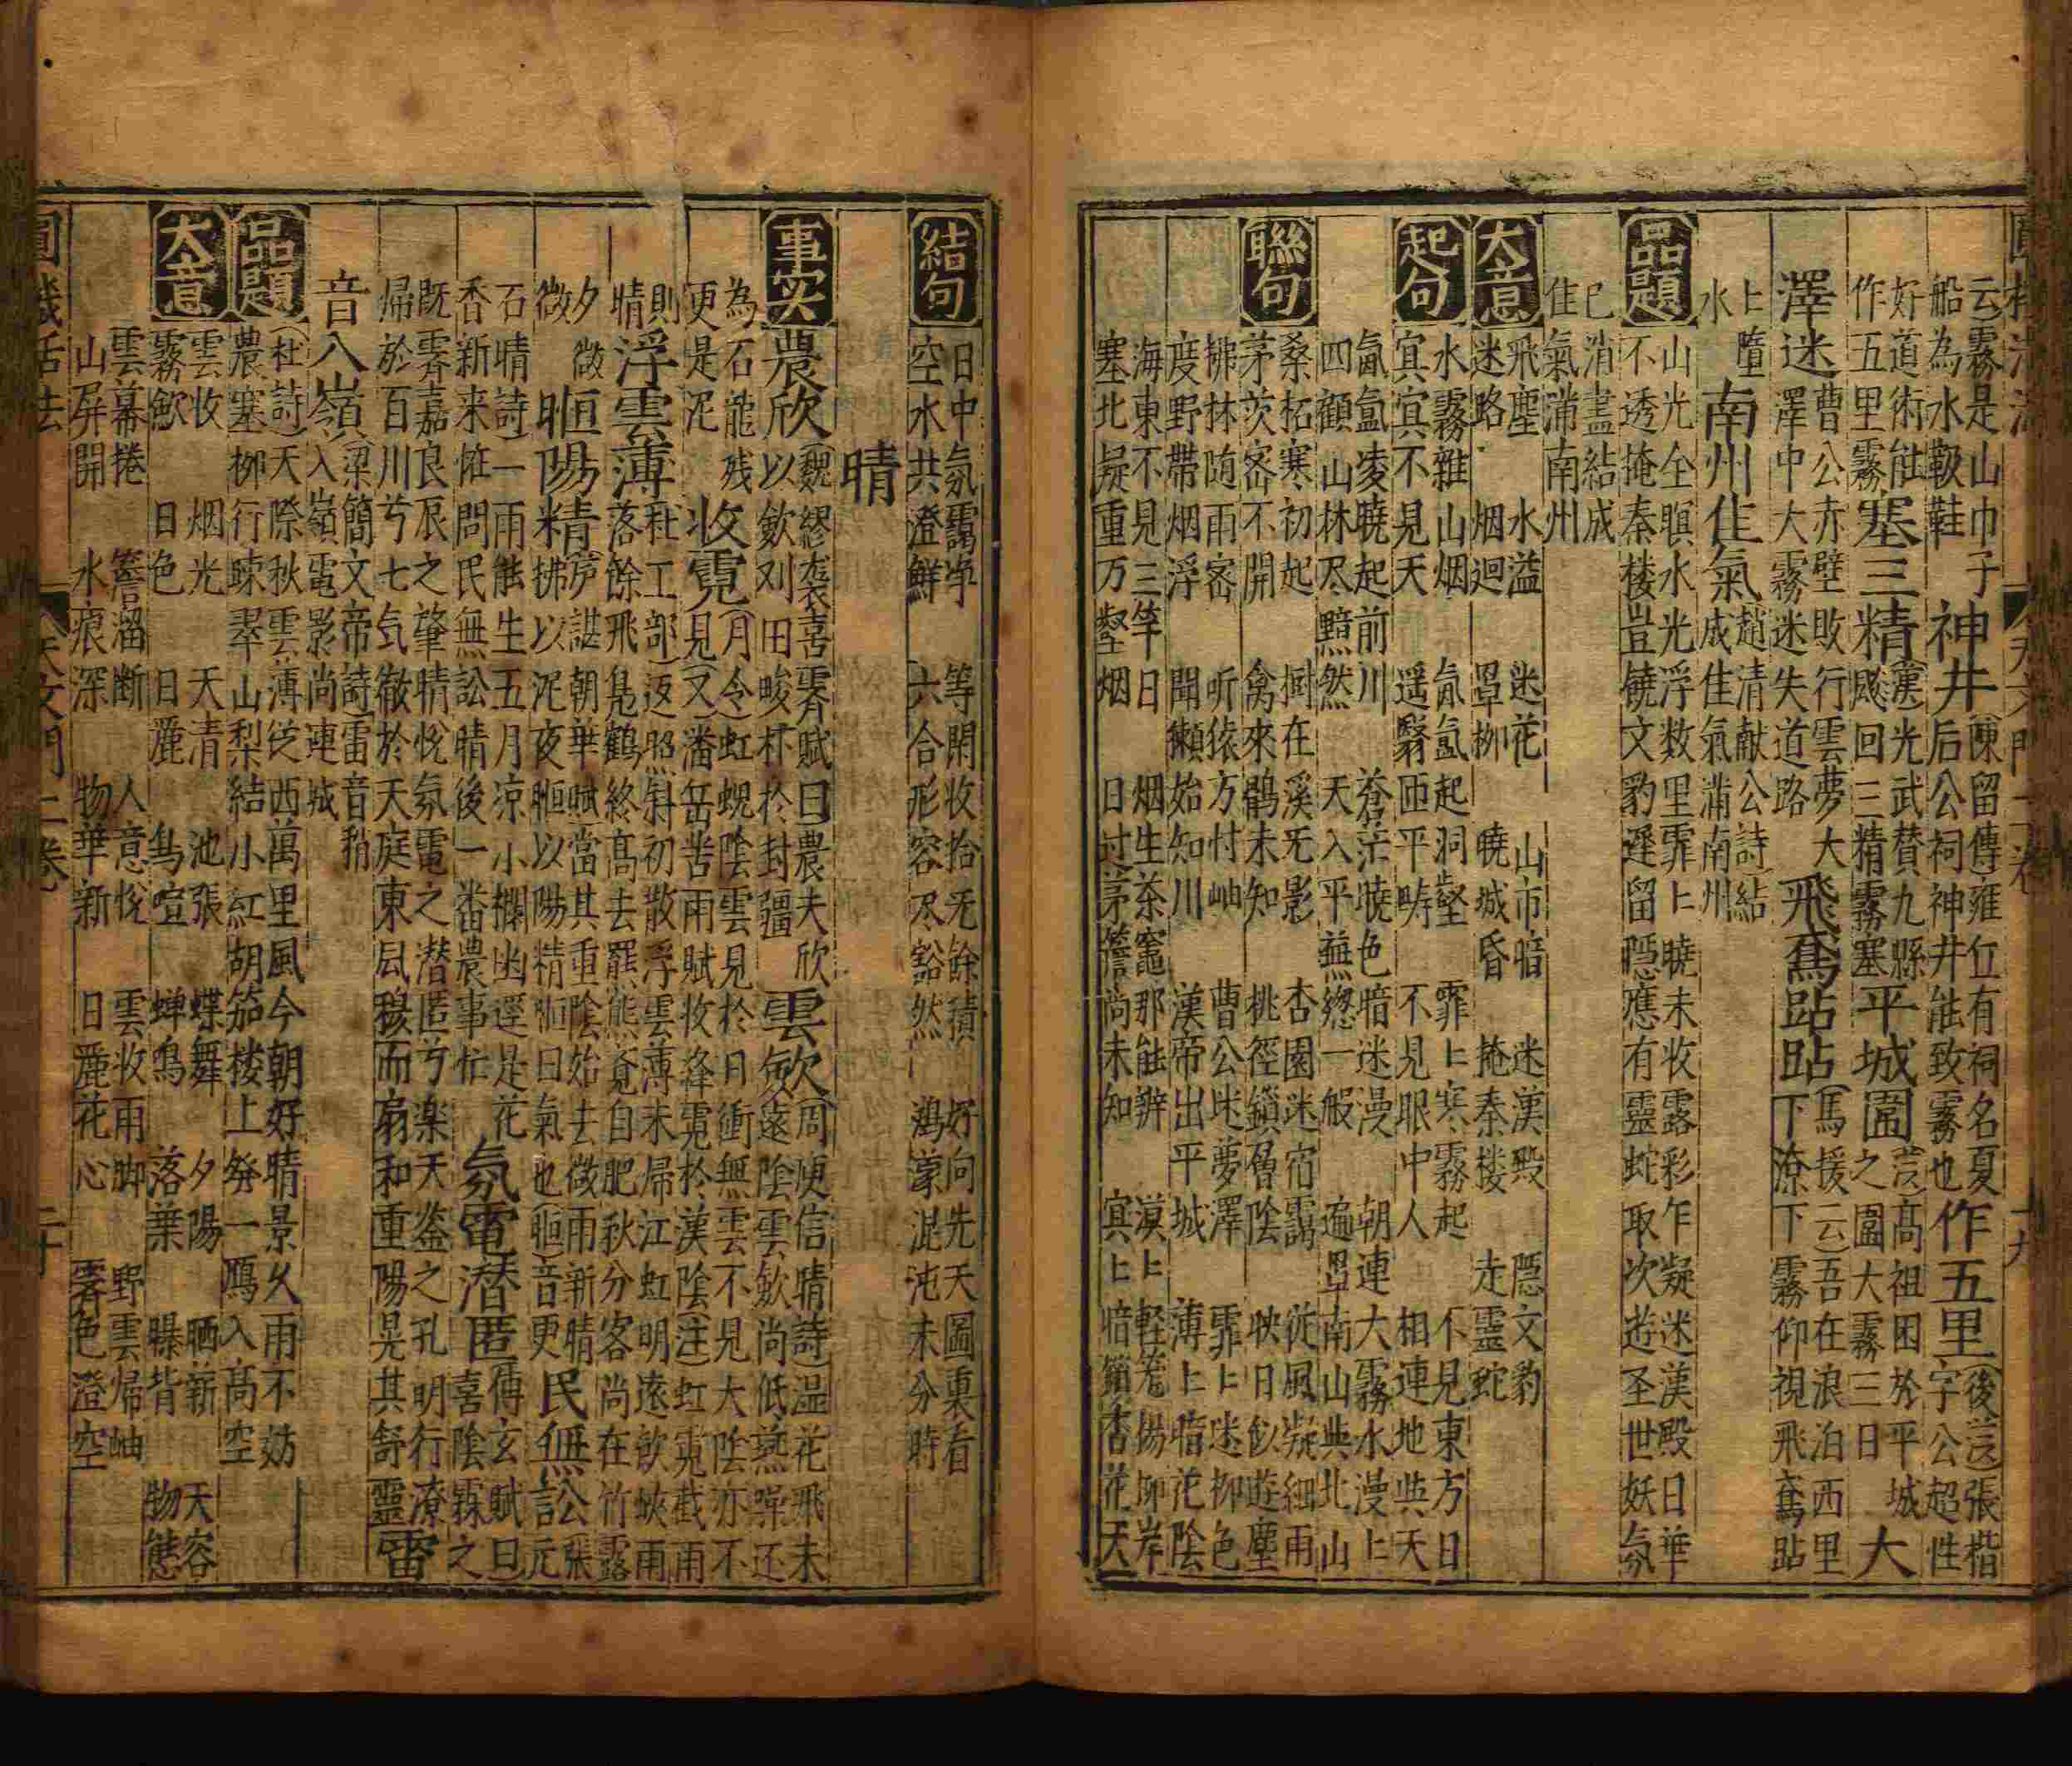 云霧是山巾子
船為水靸鞋
神井
陳留傳雍丘有祠名夏
后公祠神井能致霧也
作五里
後漢張楷
字公超性
好道術能
作五里霧
塞三精
漢光武贊九縣
飇回三精霧塞
平城圍
漢高祖困於平城
之圍大霧三日
大
澤迷
曹公赤壁敗行雲夢大
澤中大霧迷失道路
飛鳶跕跕
馬援云吾在浪泊西里
下潦下霧仰視飛鳶跕
上墮
水
南州佳氣
趙清献公詩結
成佳氣滿南州
品題
山光全暝水光浮数里霏上曉未收露彩乍凝迷漢殿日華
不透掩秦楼豈饒文豹遲留隠應有靈蛇取次逰圣世妖氛
已消盡結成
佳氣滿南州
大意
飛塵 水溢 迷花 山市暗 迷漢殿 隠文豹
迷路 烟迴 罩柳 曉城昏 掩秦楼 走靈蛇
起句
水霧雜山烟 氤氳起洞壑 霏上寒霧起 不見東方日
宜宜不見天 遥翳匝平疇 不見眼中人 相連地與天
氤氳凌曉起前川 蒼茫曉色暗迷漫 朝連大霧水漫上
四顧山林尽黯然 天入平蕪緫一般 遍罩南山與北山
聯句
桑柘寒初起 樹在溪旡影 杏園迷宿靄 從風凝細雨
茅茨密不開 禽來鵲未知 桃徑鎖層陰 映日似遊塵
拂林随雨密 听猿方忖岫 曹公迷夢澤 霏上迷柳色
度野帶烟浮 聞獺始知川 漢帝出平城 薄上暗花陰
海東不見三竿日 烟生茶竈那能辨 漠上軽籠楊柳岸
塞北凝重万壑烟 日过茅簷尚未知 宜上暗鎖杏花天
結句
日中氛靄净 等閑收拾旡餘積 好向先天圖裏看
空水共澄鮮 六合形容尽豁然 鴻濛混沌未分時
晴
事实
農欣
魏繆袭喜霽賦曰農夫欣
以歛刈田畯抃於封疆
雲歛
周庾信晴詩湿花飛未
遠陰雲歛尚低燕噪还
為石龍残
更是泥
收霓
月令虹蜺陰雲見於日衝無雲不見大陰亦不
見又潘岳苦雨賦收絳霓於漢陰注虹霓截雨
則
晴
浮雲薄
杜工部返照斜初散浮雲薄未歸江虹明遠飲峽雨
落餘飛凫鶴終高去羆熊覔自肥秋分客尚在竹露
夕
微
微
晅陽精
庾諶朝華賦當其重陰始去微雨新晴
拂以泥夜晅以陽精晅曰氣也晅音更
民無訟
張元
石晴詩一雨能生五月凉小欄幽逕是花
香新来惟問民無訟晴後一番農事忙
氛電潜匿
傅玄賦曰
喜陰霖之
既霽嘉良辰之肇晴悅氛電之潜匿兮楽天盗之孔明行潦
歸於百川兮七气徹於天庭東風穆而扇和重陽晃其舒靈
雷
音入嶺
梁簡文帝詩雷音稍
入嶺電影尚連城
品題
杜詩天際秋雲薄從西萬里風今朝好晴景久雨不妨
農塞柳行疎翠山梨結小紅胡笳楼上發一鴈入高空
大意
雲收 烟光 天清 池張 蝶舞 夕陽 晒新 天容
霧歛 日色 日麗 鳥喧 蝉鳴 落葉 曝背 物態
雲幕捲 簷溜断 人意悅 雲收雨脚 野雲歸岫
山屏開 水痕深 物華新 日麗花心 霽色澄空